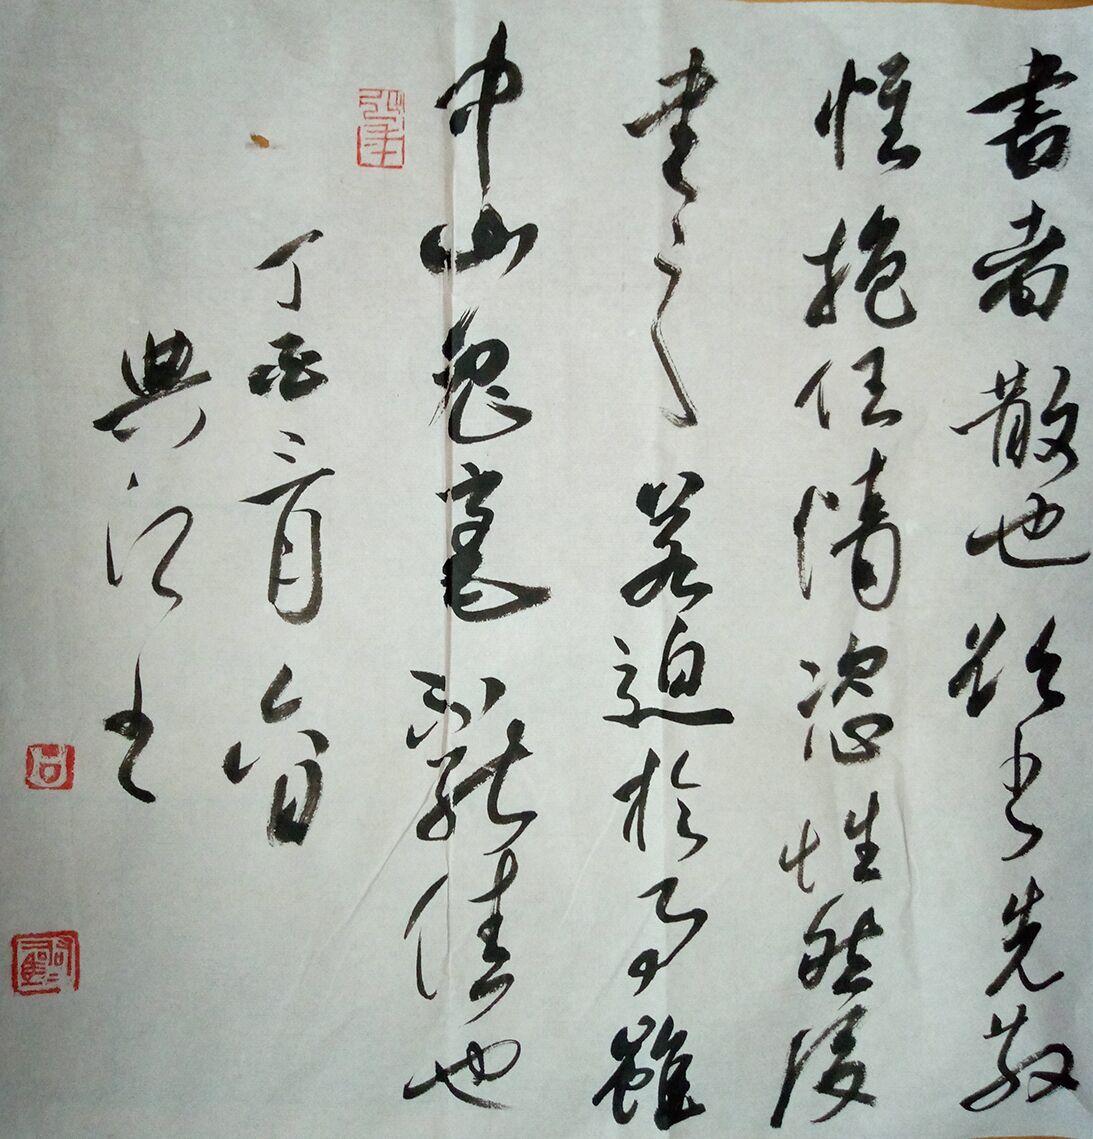 書者散也欲書先散
懷抱任情恣性然後
書之若迫於事雖
中山兔毫不能佳也
丁酉三月
典江